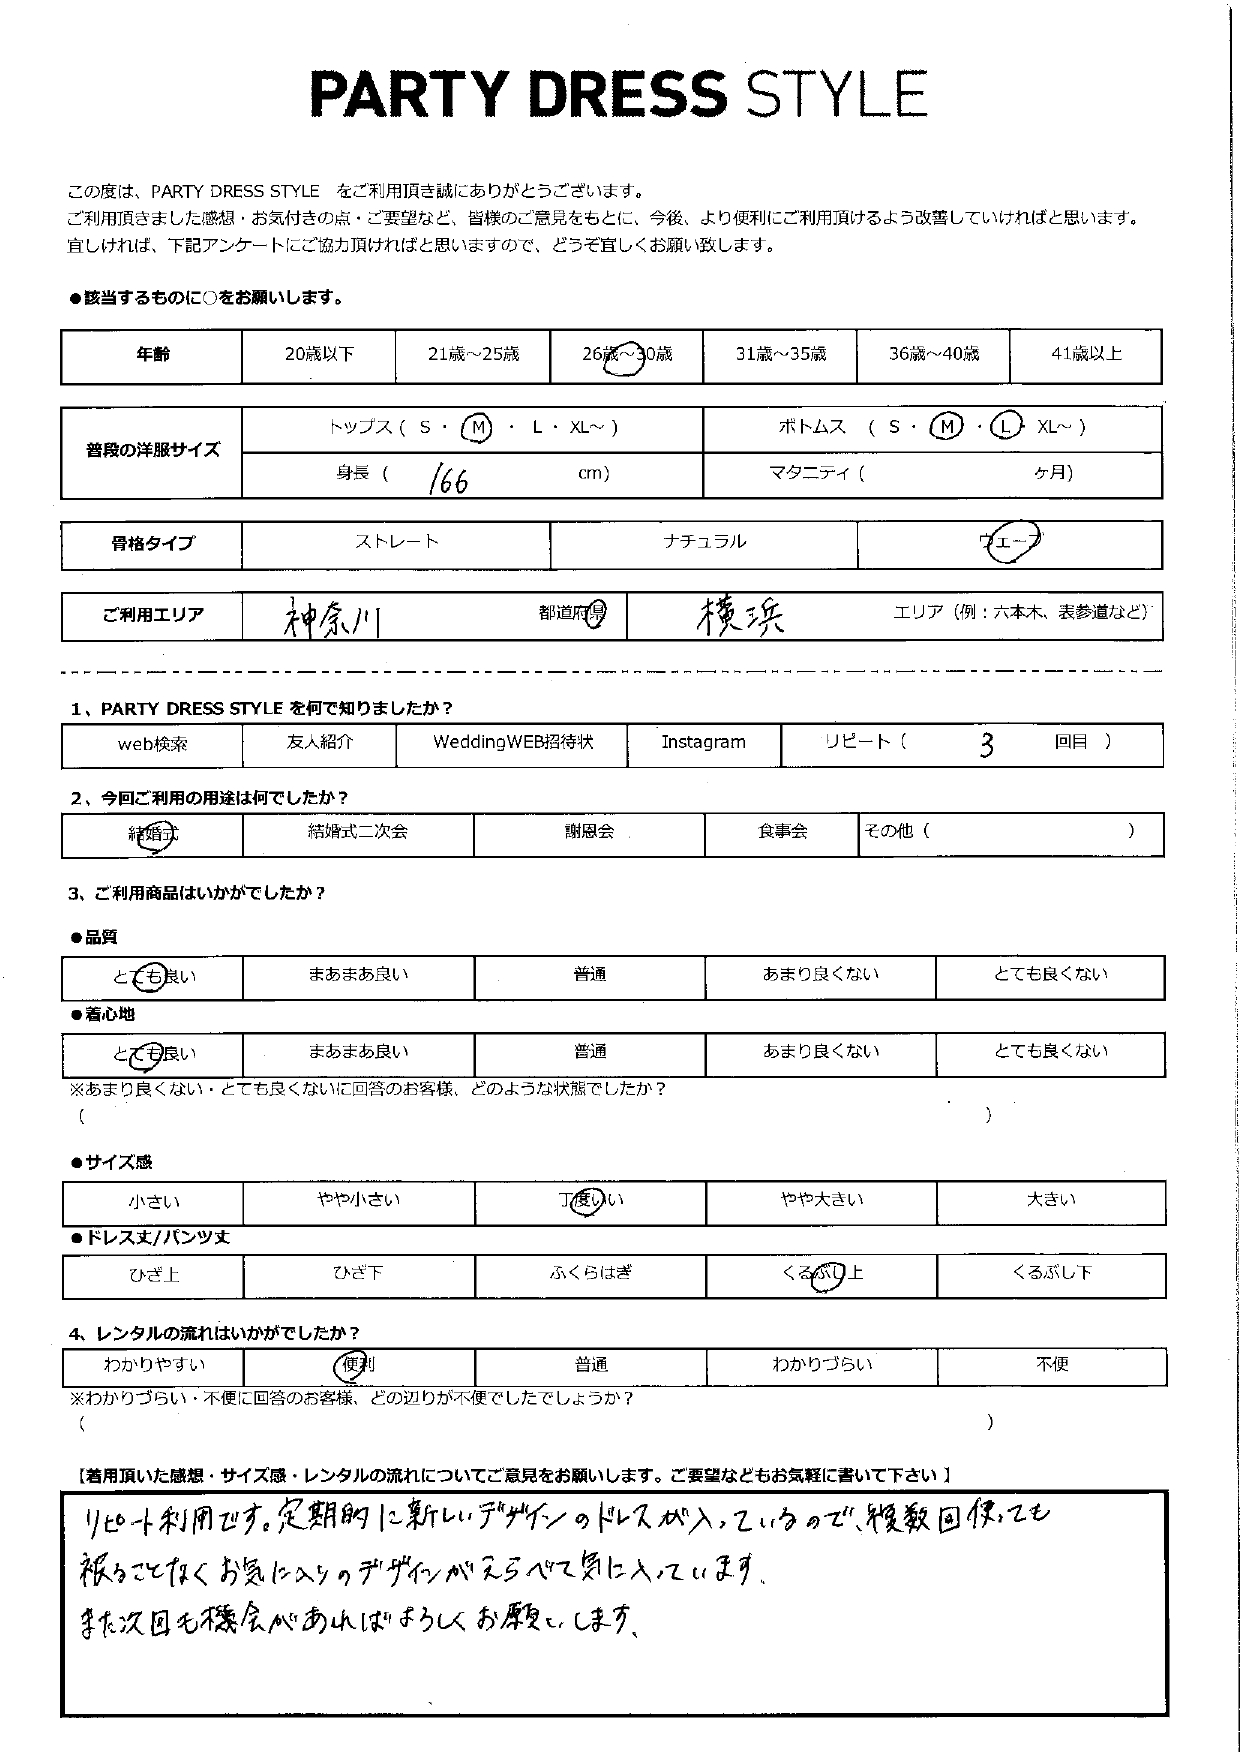 PARTY DRESS STYLE
この度は、PARTY DRESS STYLE をご利用頂き誠にありがとうございます。
ご利用頂きました感想・お気付きの点・ご要望など、皆様のご意見をもとに、今後、より便利にご利用頂けるよう改善していければと思います。
宜しければ、下記アンケートにご協力頂ければと思いますので、どうぞ宜しくお願い致します。
●該当するものに○をお願いします。
年齢 20歳以下 21歳～25歳 26歳～30歳 31歳～35歳 36歳～40歳 41歳以上
普段の洋服サイズ
トップス ( S ・ M ・ L ・ XL～ ) ボトムス ( S ・ M ・ L ・ XL～ )
身長 ( 166 cm) マタニティ ( ヶ月)
骨格タイプ ストレート ナチュラル ウェーブ
ご利用エリア 神奈川 都道府県 横浜 エリア（例：六本木、表参道など）
1、PARTY DRESS STYLE を何で知りましたか？
web検索 友人紹介 WeddingWEB招待状 Instagram リピート ( 3 回目 )
2、今回ご利用の用途は何でしたか？
結婚式 結婚式二次会 謝恩会 食事会 その他 ( )
3、ご利用商品はいかがでしたか？
●品質
とても良い まあまあ良い 普通 あまり良くない とても良くない
●着心地
とても良い まあまあ良い 普通 あまり良くない とても良くない
※あまり良くない・とても良くないに回答のお客様、どのような状態でしたか？
( )
●サイズ感
小さい やや小さい 丁度いい やや大きい 大きい
●ドレス丈/パンツ丈
ひざ上 ひざ下 ふくらはぎ くるぶし上 くるぶし下
4、レンタルの流れはいかがでしたか？
わかりやすい 便利 普通 わかりづらい 不便
※わかりづらい・不便に回答のお客様、どの辺りが不便でしたでしょうか？
( )
【着用頂いた感想・サイズ感・レンタルの流れについてご意見をお願いします。ご要望などもお気軽に書いて下さい】
リピート利用です。定期的に新しいデザインのドレスが入っているので、複数回使っても
被ることなくお気に入りのデザインがえらべて気に入っています。
また次回も機会があればよろしくお願いします。